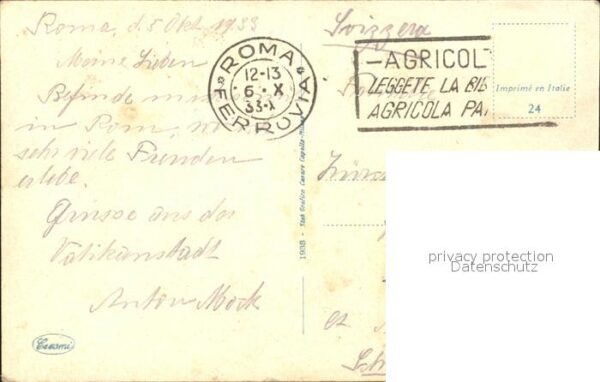 Roma, d. 5 Okt. 1933
Meine Lieben
Befinde
in Rom, wo
sehr viele Freuden
erlebe.
Grüsse aus der
Vatikanstadt
Anton Mock
Cecami
ROMA
FERROVIA
12-13
6 · X
33-
1938 - Stab Grafico Cesare Capello-Mil
Svizzera
-AGRICOL
LEGGETE LA BIB
AGRICOLA PA
Imprimé en Italie
24
Zürc
et
privacy protection
Datenschutz